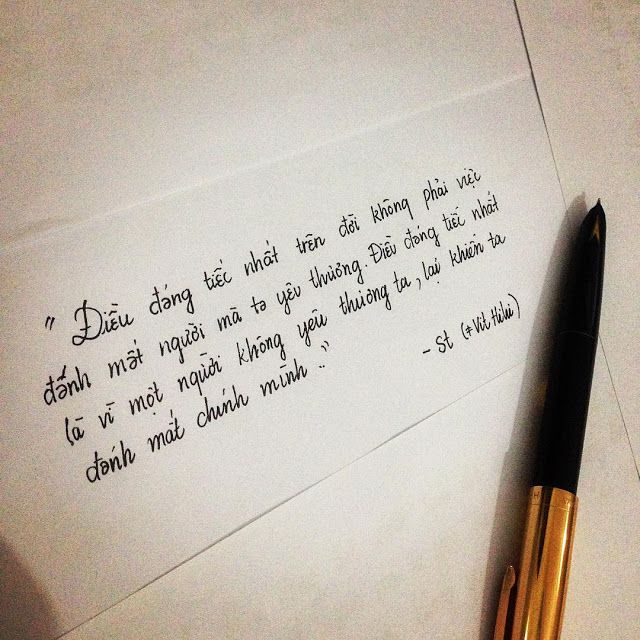 "Điều đáng tiếc nhất trên đời không phải việc
đánh mất người mà ta yêu thương. Điều đáng tiếc nhất
là vì một người không yêu thương ta, lại khiến ta
đánh mất chính mình."
- St (#Vịt Hihi)